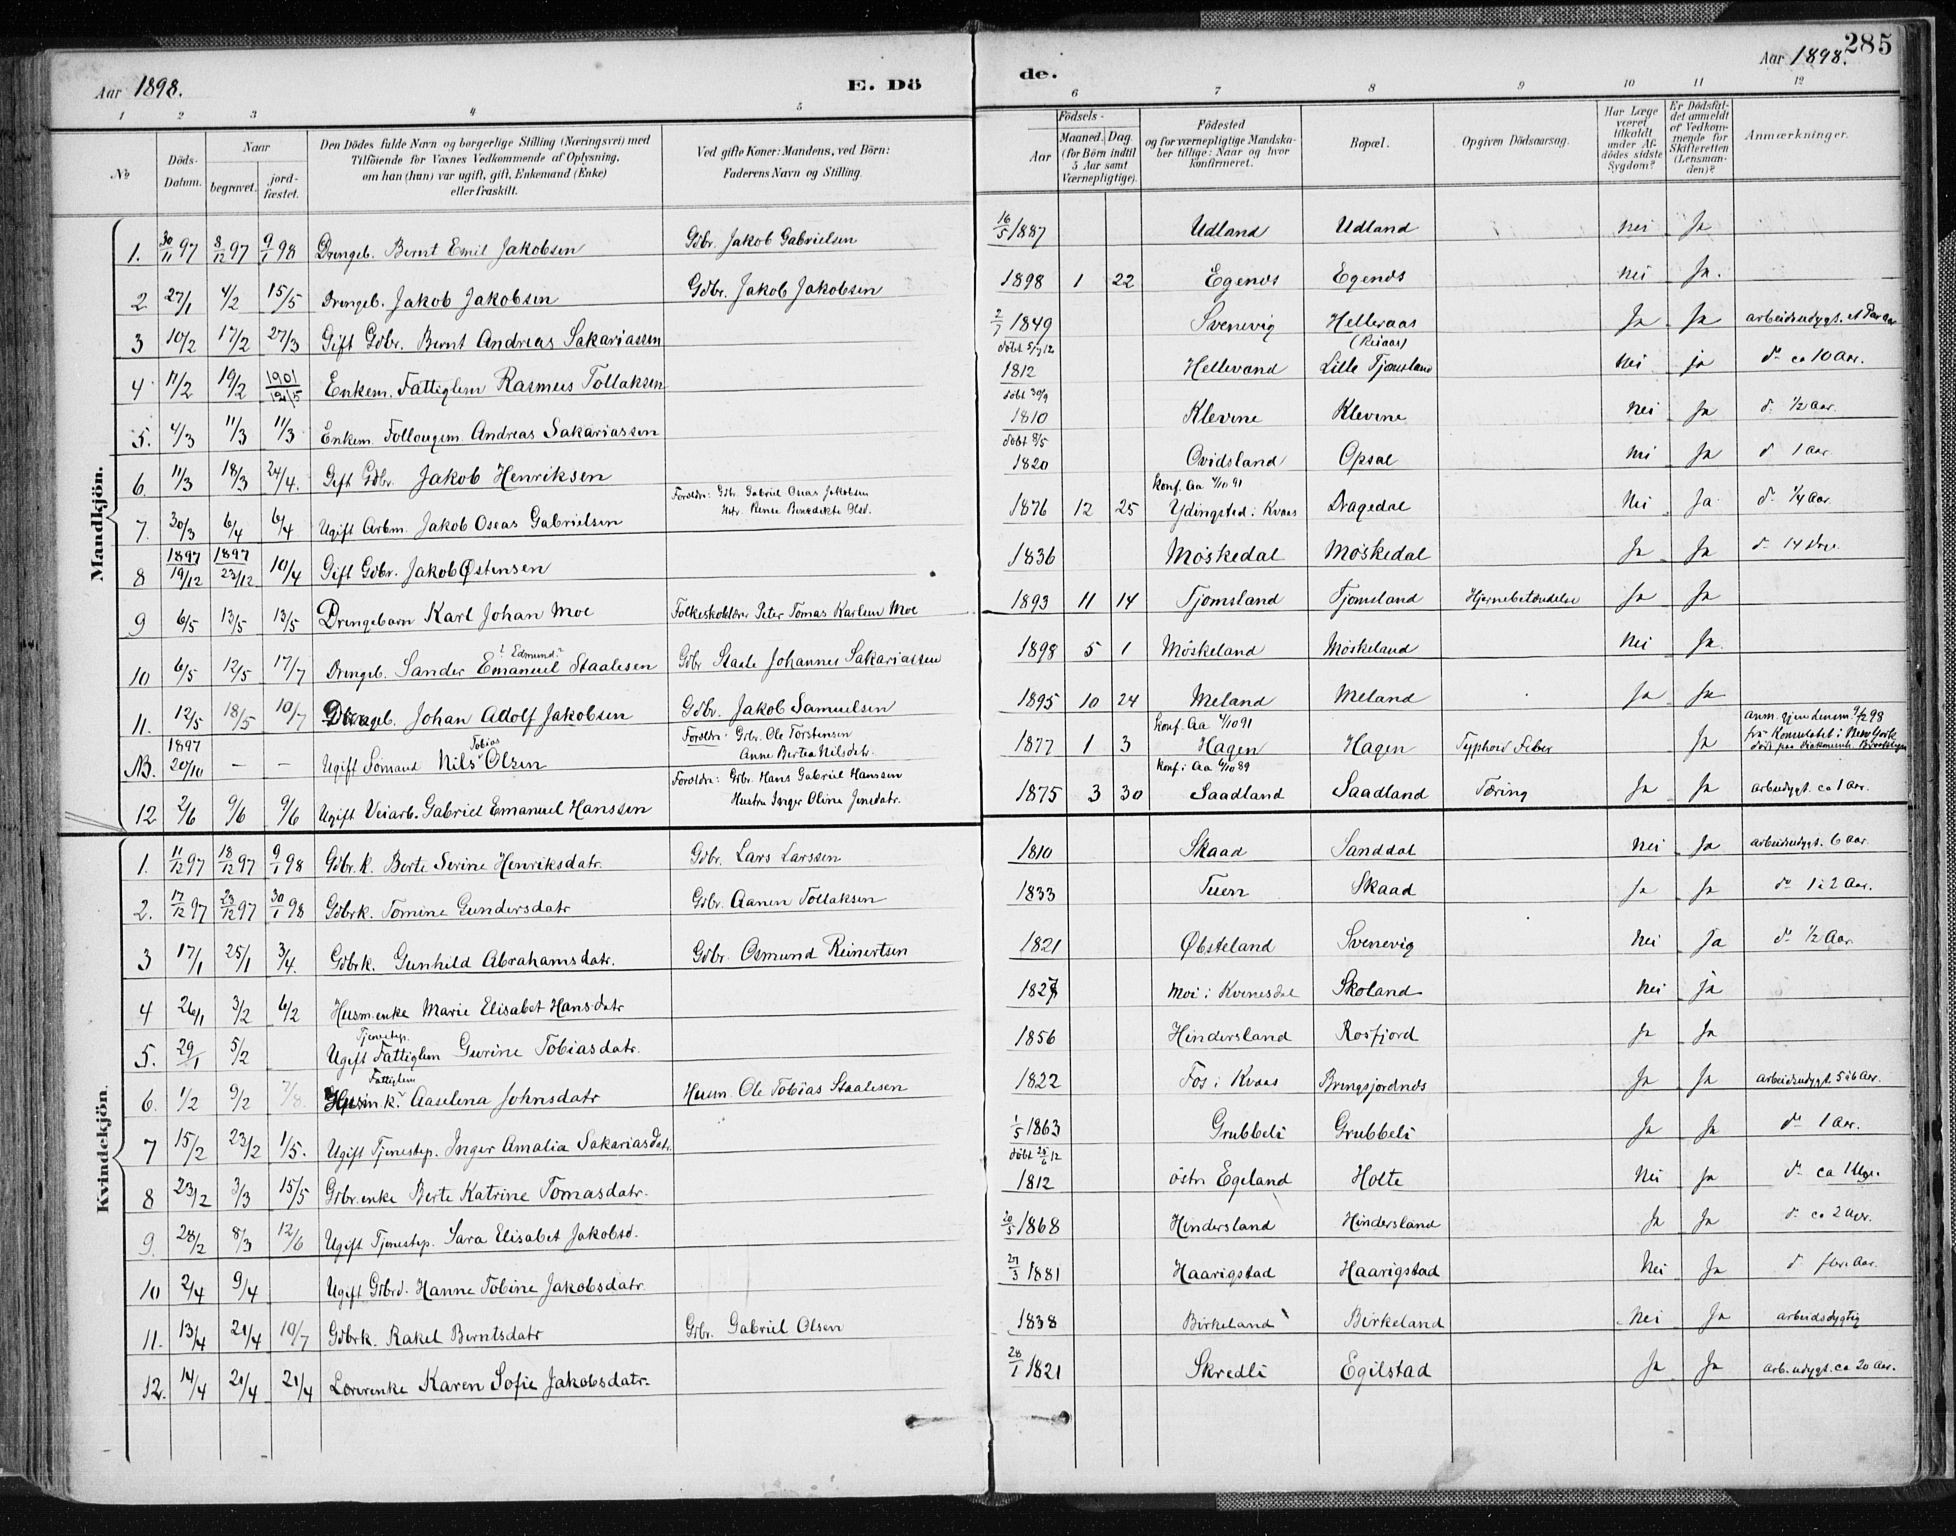 285
Aar 1898.
E. Dö
de.
Aar 1898.
1 2 3 4 5 6 7 8 9 10 11 12
No
Döds-Datum.
Naar
begravet.
jord-fæstet.
Den Dödes fulde Navn og borgerlige Stilling (Næringsvei) med
Tilföiende for Voxnes Vedkommende af Oplysning,
om han (hun) var ugift, gift, Enkemand (Enke)
eller fraskilt.
Ved gifte Koner: Mandens, ved Börn:
Faderens Navn og Stilling.
Födsels-
Aar
Maaned. Dag.
(for Börn indtil
5 Aar samt
Værnepligtige).
Födested
og for værnepligtige Mandska-
ber tillige: Naar og hvor
konfirmeret.
Bopæl.
Opgiven Dödsaarsag.
Har Læge
været
tilkaldt
under Af-
dödes sidste
Sygdom?
Er Dödsfal-
det anmeldt
af Vedkom-
mende for
Skifteretten
(Lensman-
den)?
Anmærkninger.
Mandkjön.
1. 30/11 97 8/12 97 9/1 98 Drengeb. Bernt Emil Jakobsen Gdbr. Jakob Gabrielsen 16/5 1887 Udland Udland Nei Ja
2 27/1 4/2 15/5 Drengeb. Jakob Jakobsen Gdbr. Jakob Jakobsen 1898 1 22 Egenes Egenes Nei Ja.
3 10/2 17/2 27/3 Gift Gdbr. Bernt Andreas Sakariassen 2/7 1849 Svenevig Helleraas Ja Ja arbeidsudygt. et Par Aar
4 11/2 19/2 1901 12/5 Enkem. Fattiglem Rasmus Tollaksen döbt 5/7 12 1812 Hellevand Lille Tjomsland Nei ja do ca 10 Aar.
5. 4/3 11/3 11/3 Enkem. Andreas Sakariassen döbt 30/9 1810 Klevene Klevene Nei Ja do 1/2 Aar.
6 11/3 18/3 24/4. Gift Gdbr. Jakob Henriksen döbt 8/5 1820 Ovidsland Opsal Nei Ja do 1 Aar.
7. 30/3 6/4 6/4 Ugift Arbm. Jakob Oseas Gabrielsen Foreldre: Gdbr. Gabriel Oseas Jakobsen
Benedikte Olsd. konf. Aa 4/10 91 1876 12 25 Ydingstad i Kvaas Dragedal Nei Ja do 1/4 Aar.
8 1897 19/12 1897 23/12 10/4 Gift Gdbr. Jakob Østensen 1836 Möskedal Möskedal Ja Ja do 14 Dage
9 6/5 13/5 13/5 Drengebarn Karl Johan Moe Folkeskolelærer Peter Tomas Karlsen Moe 1893 11 14 Tjomsland Tjomsland Hjernebetændelse Ja Ja
10 6/5 12/5 17/7 Drengeb. Sander Emanuel Staalesen "Edmund" Gdbr Staale Johannes Sakariassen 1898 5 1 Möskeland Möskeland Nei Ja.
11. 12/5 18/5 10/7 Drengeb. Johan Adolf Jakobsen Gdbr. Jakob Samuelsen 1895 10 24 Meland Meland Ja Ja
NB. 1897 20/10 – – Ugift Sömand Nils Tobias Olsen Foreldre: Gdbr. Ole Torstensen
Anne Bertea Nilsdatr. konf. Aa 4/10 91 1877 1 3 Hagen Hagen Typhoid Feber Ja anm. gjen. lensm. 9/2 98
fra Konsulatet i New York
12 2/6 9/6 9/6 Ugift Veiarb. Gabriel Emanuel Hanssen Foreldre: Gdbr. Hans Gabriel Hanssen
Hustru Inger Oline Jensdatr. konf. i Aa 6/10 89 1875 3 30 Saadland Saadland Tæring Ja Ja arbudygt. ca 1 Aar.
Kvindekjön.
1. 11/12 97 18/12 97 9/1 98 Gdbr.k. Berte Serine Henriksdatr. Gdbr. Lars Larssen 1810 Skaad Sanddal Nei Ja arbeidsudygt. 6 Aar.
2. 17/12 97 23/12 97 30/1 98 Gdbrk. Tomine Gundersdatr Gdbr. Aanen Tollaksen 1833 Tuen Skaad Ja Ja do 1 à 2 Aar.
3 17/1 25/1 3/4. Gdbrk. Gunhild Abrahamsdatr. Gdbr. Osmund Reinertsen 1821 Øbsteland Svenevig Nei Ja do 1/2 Aar.
4 26/1 3/2 6/2 Husm.enke Marie Elisabet Hansdatr 1827 Moi i Kvinesdal Skoland Nei ja
5. 29/1 5/2 Ugift Tjenestep. Fattiglem Gurine Tobiasdatr. 1856 Hindersland Rosfjord Ja Ja
6. 1/2 9/2 7/8. Fattiglem Husm.k. Aaselena Johnsdatr Husm. Ole Tobias Staalesen 1822 Fos i Kvaas Bringsjordnes Ja Ja arbeidsudygt. 5 à 6 Aar.
7 15/2 23/2 1/5. Ugift Tjenestep. Inger Amalia Sakariasdatr. 1/5 1863 Grubbeli Grubbeli Ja Ja do 1 Aar.
8 23/2 3/3 15/5 Gdbr.enke Berte Katrine Tomasdatr. döbt 25/6 12 1812 östr. Egeland Holte Nei Ja do ca 1 Uge.
9. 28/2 8/3 12/6 Ugift Tjenestep. Sara Elisabet Jakobsd. 20/5 1868 Hindersland Hindersland Ja Ja do ca 2 Uger.
10 2/4 9/4 Ugift Gdbrd. Hanne Tobine Jakobsdatr. 27/3 1881 Haarigstad Haarigstad Nei Ja do flere Aar.
11. 13/4 21/4 10/7 Gdbrk. Rakel Berntsdatr Gdbr. Gabriel Olsen 1838 Birkeland Birkeland Nei Ja arbeidsdygtig
12. 14/4 21/4 21/4 Lærerenke Karen Sofie Jakobsdatr. 28/1 1821 Skredli Egilstad Ja Ja arb.udygt. ca 20 Aar.